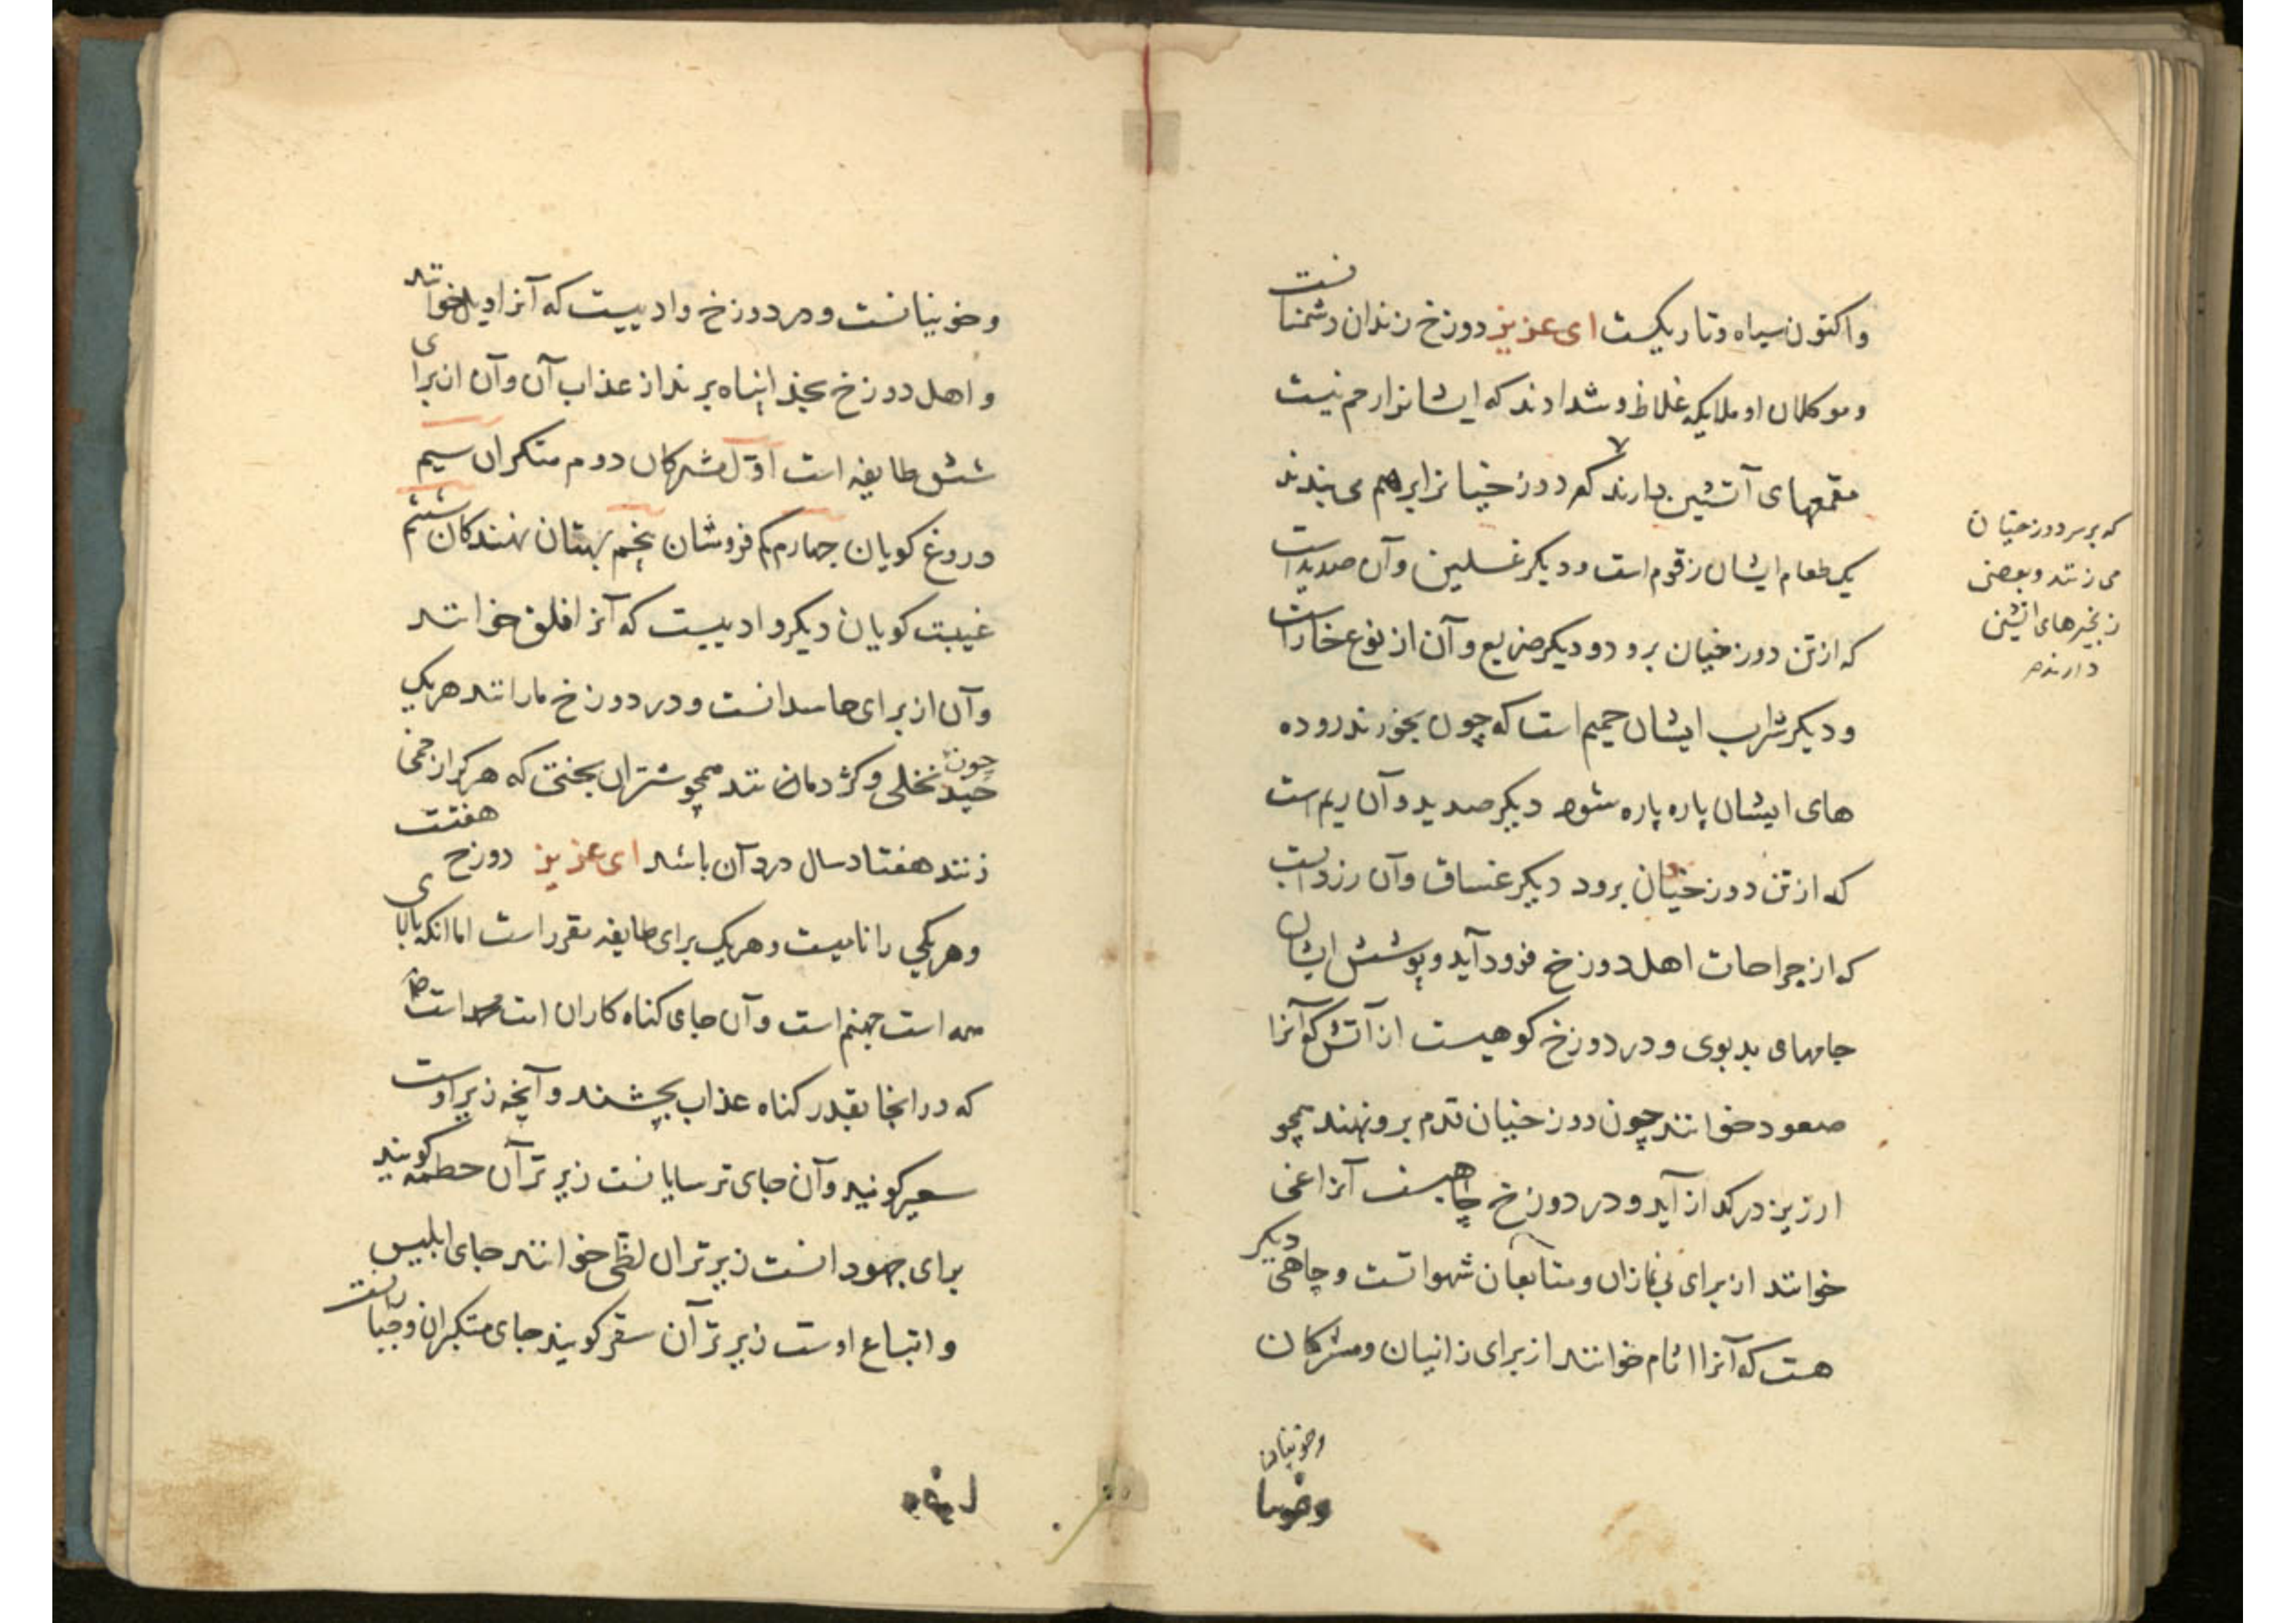 واکنون سیاه وتاریکست ای عزیز دوزخ زندان دشمنانست
وموکلان او ملایکه غلاظ و شدادند که ایشانرا رحم نیست
مقمعهای آتشین دارند که دوزخیانرا برهم می بندند
که بر سر دوزخیان
می زنند و بعضی
زنجیرهای اتشین
دارند
یک طعام ایشان زقوم است ودیکر غسلین وآن صدیداست
که ازتن دوزخیان برود ودیکر ضریع وآن از نوع خاراست
ودیکر شراب ایشان حمیم است که چون بخورند روده
های ایشان پاره پاره شود دیکر صدید وآن ریم است
که ازتن دوزخیان برود دیکر غساق وآن زردابست
که از جراحات اهل دوزخ فرود آید وپوشش ایشان
جامهای بدبوی ودر دوزخ کوهیست از آتش که آنرا
صعود خوانند چون دوزخیان قدم برو نهند همچو
ارزیز در کداز آید ودر دوزخ چاهیست آنرا غی
خوانند از برای بی نمازان ومتابعان شهواتست وچاهی دیکر
هست که آنرا اثام خوانند از برای زانیان ومشرکان
وخونیان
وخونیانست ودر دوزخ وادییست که آنرا ویل خوانند
واهل دوزخ بخدا پناه برند از عذاب آن وآن از برای
شش طایفه است اوّل مشرکان دوم متکبران سیم
دروغ کویان چهارم کم فروشان پنجم بهتان نهندکان ششم
غیبت کویان دیکر وادییست که آنرا فلق خوانند
وآن از برای حاسدانست ودر دوزخ مارانند هریک
چون نخلی وکژدمانند همچو شتران بختی که هرکرا زخمی
زنند هفتاد سال درد آن باشد ای عزیز دوزخ هفتست
وهریکی را نامیست وهریک برای طایفه مقرر است اما انکه بالای
همه است جهنم است وآن جای کناه کاران امت محمد است
که در انجا بقدر کناه عذاب بچشند وآنچه زیر اوست
سعیر کویند وآن جای ترسایانست زیر تر آن حطمه کویند
برای جهودانست زیر تر ان لظی خوانند جای ابلیس
واتباع اوست زیر تر آن سقر کویند جای متکبران وجبارانست